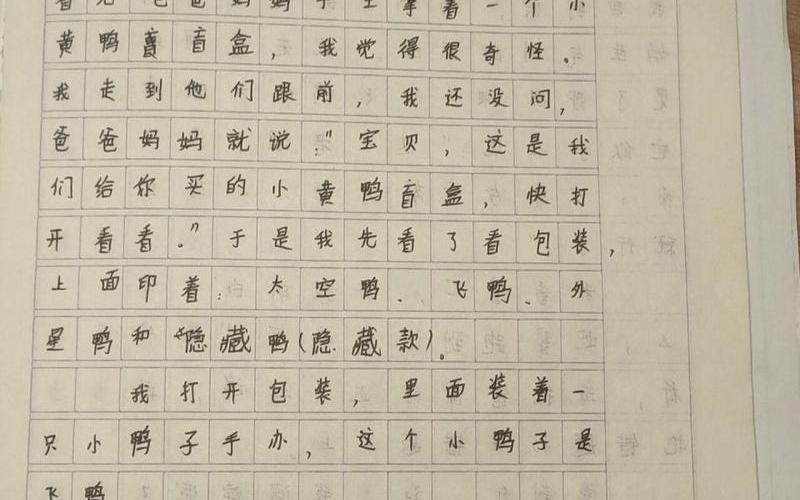 妈妈手上拿着一个小
黄鸭盲盒，我觉得很奇怪。
我走到他们跟前，我还没问，
爸爸妈妈就说：“宝贝，这是我
们给你买的小黄鸭盲盒，快打
开看看。”于是我先看了看包装，
上面印着：太空鸭、飞鸭、外
星鸭和“隐藏鸭(隐藏款)。
我打开包装，里面装着一
只小鸭子手办，这个小鸭子是
飞鸭